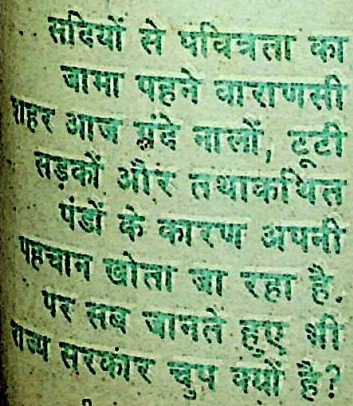 सदियों से पवित्रता का
जामा पहने वाराणसी
शहर आज गंदे नालों, टूटी
सड़कों और तथाकथित
पंडों के कारण अपनी
पहचान खोता जा रहा है.
पर सब जानते हुए भी
राज्य सरकार चुप क्यों है?